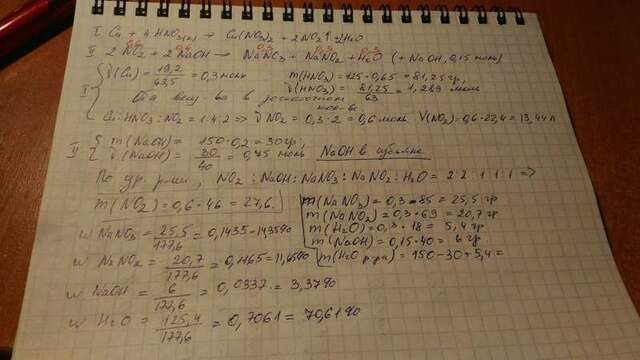 I. Cu + 4 HNO3(к) → Cu(NO3)2 + 2NO2↑ + 2H2O
0,6 0,6 0,3 0,3 0,3
II 2 NO2 + 2 NaOH → NaNO3 + NaNO2 + H2O (+ NaOH, 0,15 моль)
I { ν(Cu) = 19,2/63,5 = 0,3 моль m(HNO3) = 125·0,65 = 81,25 гр,
ν(HNO3) = 81,25/63 = 1,289 моль
Оба вещ-ва в
кол-ве
Cu : HNO3 : NO2 = 1:4:2 ⇒ ν NO2 = 0,3·2 = 0,6 моль V(NO2) = 0,6·22,4 = 13,44 л
II { m(NaOH) = 150·0,2 = 30 гр,
ν(NaOH) = 30/40 = 0,75 моль NaOH в избытке
По ур. р-ции, NO2 : NaOH : NaNO3 : NaNO2 : H2O = 2:2:1:1:1 ⇒
m(NO2) = 0,6·46 = 27,6.
m(NaNO3) = 0,3·85 = 25,5 гр
m(NaNO2) = 0,3·69 = 20,7 гр
m(H2O) = 0,3·18 = 5,4 гр
m(NaOH) = 0,15·40 = 6 гр
m(H2O р-ра) = 150-30+5,4 =
w NaNO3 = 25,5/177,6 = 0,1435 = 14,35%
w NaNO2 = 20,7/177,6 = 0,1165 = 11,65%
w NaOH = 6/177,6 = 0,0337 = 3,37%
w H2O = 125,4/177,6 = 0,7061 = 70,61%